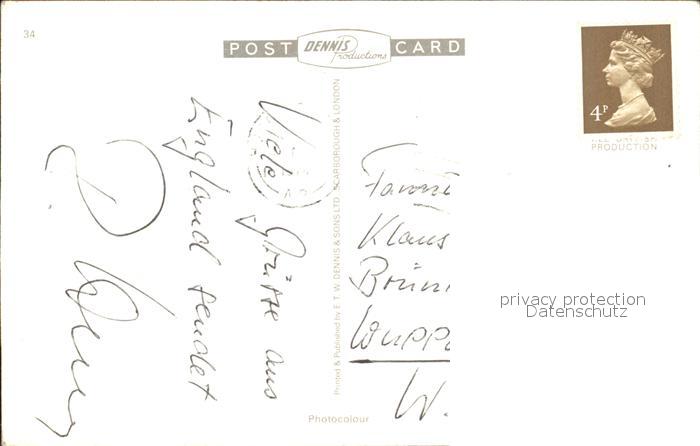 34
POST DENNIS Productions CARD
4P
ALL BRITISH
PRODUCTION
Viele Grüsse aus
England sendet
Printed & Published by E. T. W. DENNIS & SONS LTD., SCARBOROUGH & LONDON
Klaus
Wupp
W.
privacy protection
Datenschutz
Photocolour